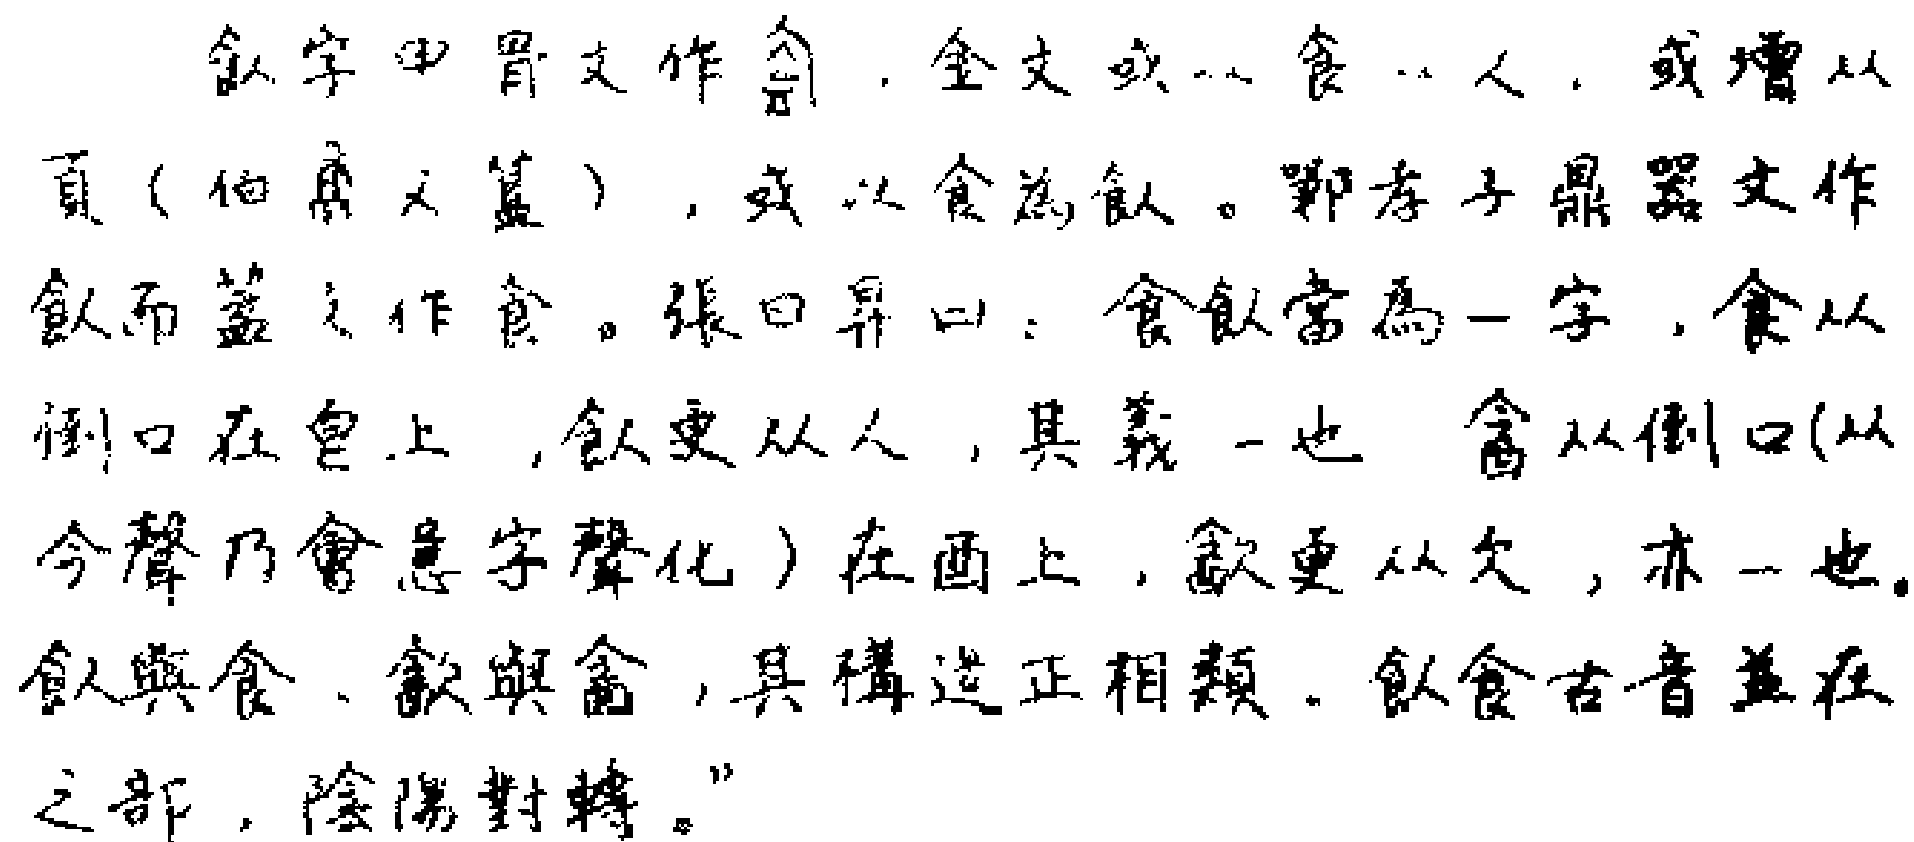 飤字甲骨文作，金文或从食从人，或增从
頁（伯父簋），或以食為飤。鄲孝子鼎器文作
飤而蓋文作食。張日昇曰：食飤當為一字，食从
倒口在皀上，飤更从人，其義一也 酓从倒口(从
今聲乃會意字聲化）在酉上，㱃更从欠，亦一也。
飤與食、㱃與酓，其構造正相類。飤食古音並在
之部，陰陽對轉。”